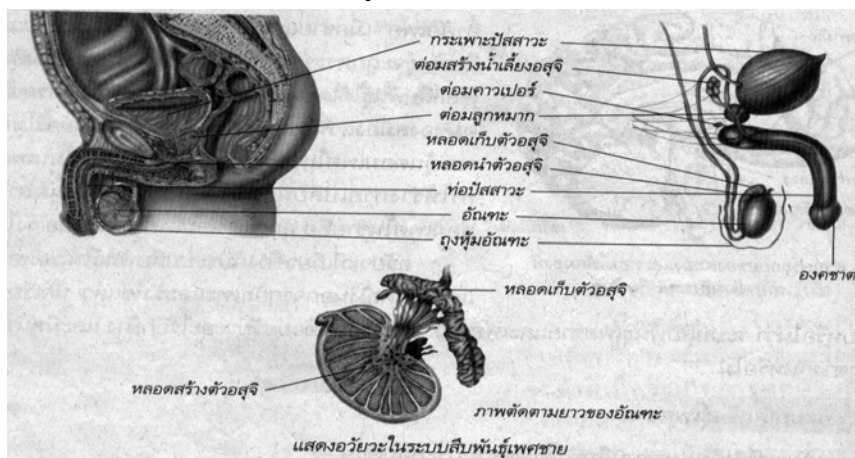 กระเพาะปัสสาวะ
ต่อมสร้างน้ำเลี้ยงอสุจิ
ต่อมคาวเปอร์
ต่อมลูกหมาก
หลอดเก็บตัวอสุจิ
หลอดนำตัวอสุจิ
ท่อปัสสาวะ
อัณฑะ
ถุงหุ้มอัณฑะ
องคชาต
หลอดเก็บตัวอสุจิ
หลอดสร้างตัวอสุจิ
ภาพตัดตามยาวของอัณฑะ
แสดงอวัยวะในระบบสืบพันธุ์เพศชาย